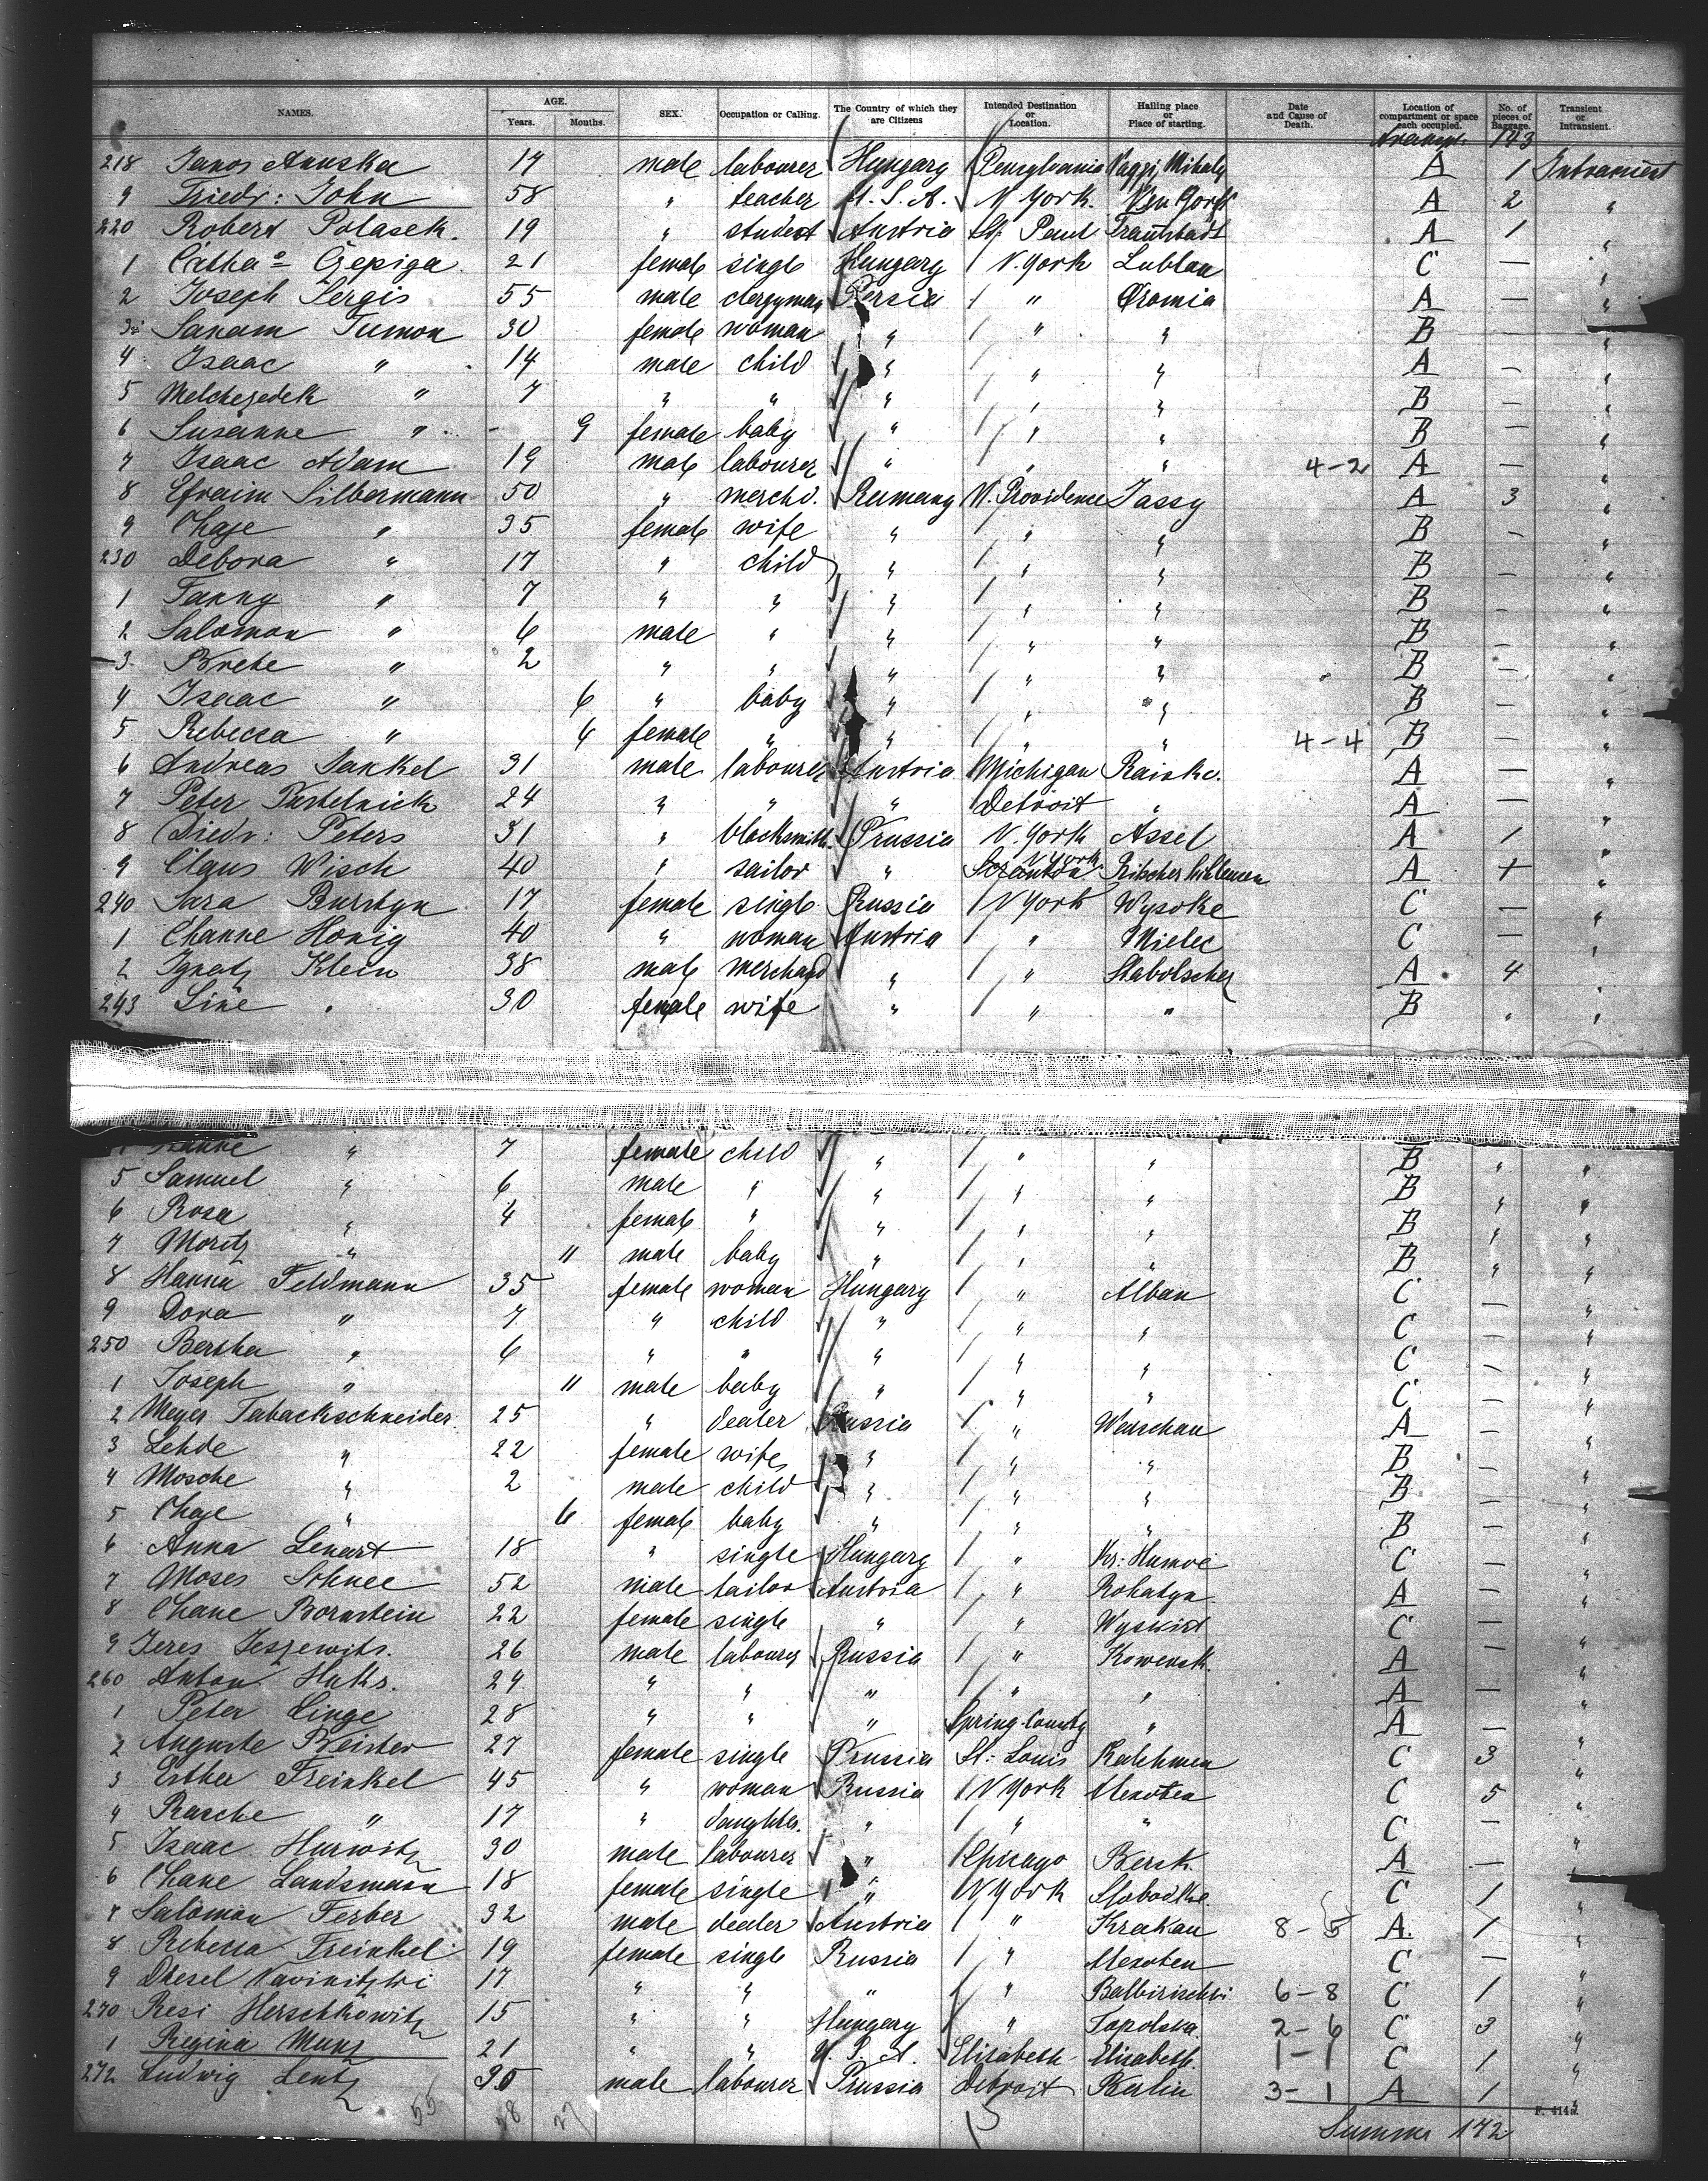 NAMES. AGE. Years. Months. SEX. Occupation or Calling. The Country of which they are Citizens Intended Destination or Location. Hailing place or Place of starting. Date and Cause of Death. Location of compartment or space each occupied. No. of pieces of Baggage. Transient or Intransient.
143
218 Janos Anuska 19 male labourer Hungary Pensylvania Nagy Mihaly A 1 Intransient
9 Friedr: John 58 " teacher U. S. A. N York. New York A 2 "
220 Robert Polasek. 19 " student Austria St. Paul Fraustadt A 1 "
1 Catha Czepiga 21 female single Hungary N. York Lublau C — "
2 Joseph Sergis 55 male clergyman Persia " Oromia A — "
3 Sanam Tumon 30 female woman " " " B — "
4 Isaac " 14 male child " " " A — "
5 Melchezedek " 7 " " " " " B — "
6 Susanne " - 9 female baby " " " B — "
7 Isaac Adam 19 male labourer " " " 4-2 A — "
8 Efraim Silbermann 50 " merchd. Rumany N. Providence Jassy A 3 "
9 Chaje " 35 female wife " " " B — "
230 Debora " 17 " child " " " B — "
1 Fanny " 7 " " " " " B — "
2 Salomon " 6 male " " " " B — "
3 " 2 " " " " " B — "
4 Isaac " 6 " baby " " " B — "
5 Rebecca " 6 female " " " " 4-4 B — "
6 Andreas Jankel 31 male labourer Austria Michigan A — "
7 Peter 24 " " " Detroit " A — "
8 Diedr: Peters 31 " blacksmith. Prussia N. York Assel A 1 "
9 Claus Wisch 40 " sailor " Scranton N York A + "
240 Sara Burstyn 17 female single Russia N York Wysoke C — "
1 Channe Honig 40 " woman Austria " Mielec C — "
2 Ignatz Klein 38 male merchand " " A 4 "
243 Line " 30 female wife " " " B " "
" 7 female child " " " B " "
5 Samuel " 6 male " " " " B " "
6 Rosa " 4 female " " " " B " "
7 Moritz " 11 male baby " " " B " "
8 Hanna Feldmann 35 female woman Hungary " Alban C — "
9 Dora " 7 " child " " " C — "
250 Bertha " 6 " " " " " C — "
1 Joseph " 11 male baby " " " C — "
2 Meyer Tabackschneider 25 " dealer Russia " Warschau A — "
3 " 22 female wife " " " B — "
4 Mosche " 2 male child " " " B — "
5 Chaje " 6 female baby " " " B — "
6 Anna Lenart 18 " single Hungary " C — "
7 Moses Schnee 52 male tailor Austria " Rohatyn A — "
8 Chane Bornstein 22 female single " " C — "
9 26 male labourer Russia " Kowensk. A — "
260 Anton 29 " " " " " A — "
1 Peter 28 " " " Spring-County " A — "
2 Auguste 27 female single Prussia St. Louis C 3 "
3 Esther Freinkel 45 " woman Russia N York C 5 "
4 Rasche " 17 " daughter. " " " C — "
5 Isaac Hurwitz 30 male labourer " Chicago Bersk. A — "
6 Chane Landsmann 18 female single " N York Slobodke C 1 "
7 Salomon Ferber 32 male dealer Austria " Krakau 8-5 A. 1 "
8 Rebecca Freinkel 19 female single Russia " C — "
9 17 " " " " Balbirischki 6-8 C 1 "
270 Resi Herschkowitz 15 " " Hungary " 2-6 C 3 "
1 Regina Munz 21 " " U. S. A. Elizabeth Elizabeth. 1-1 C 1 "
272 Ludwig Lentz 35 male labourer Prussia Detroit Berlin 3-1 A 1 "
F. 414a.
Summa 172